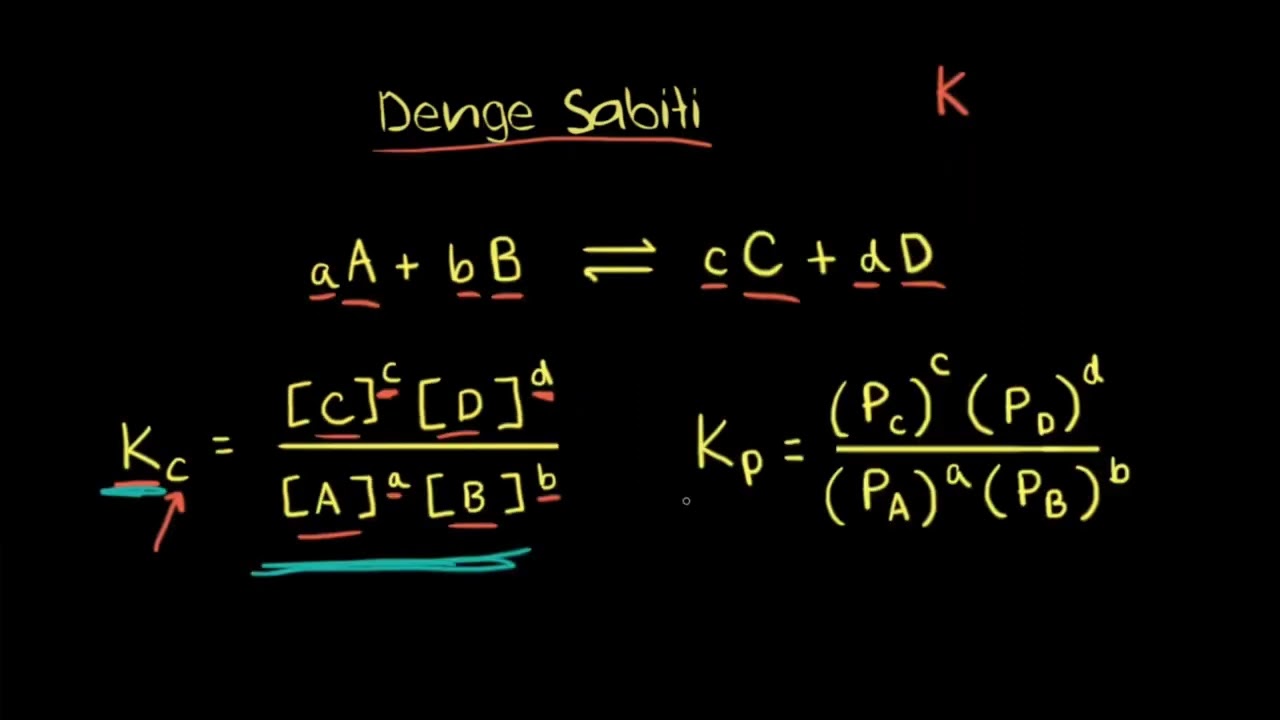 Denge Sabiti
K
aA + bB ⇌ cC + dD
K_c = [C]^c [D]^d / [A]^a [B]^b
K_p = (P_C)^c (P_D)^d / (P_A)^a (P_B)^b